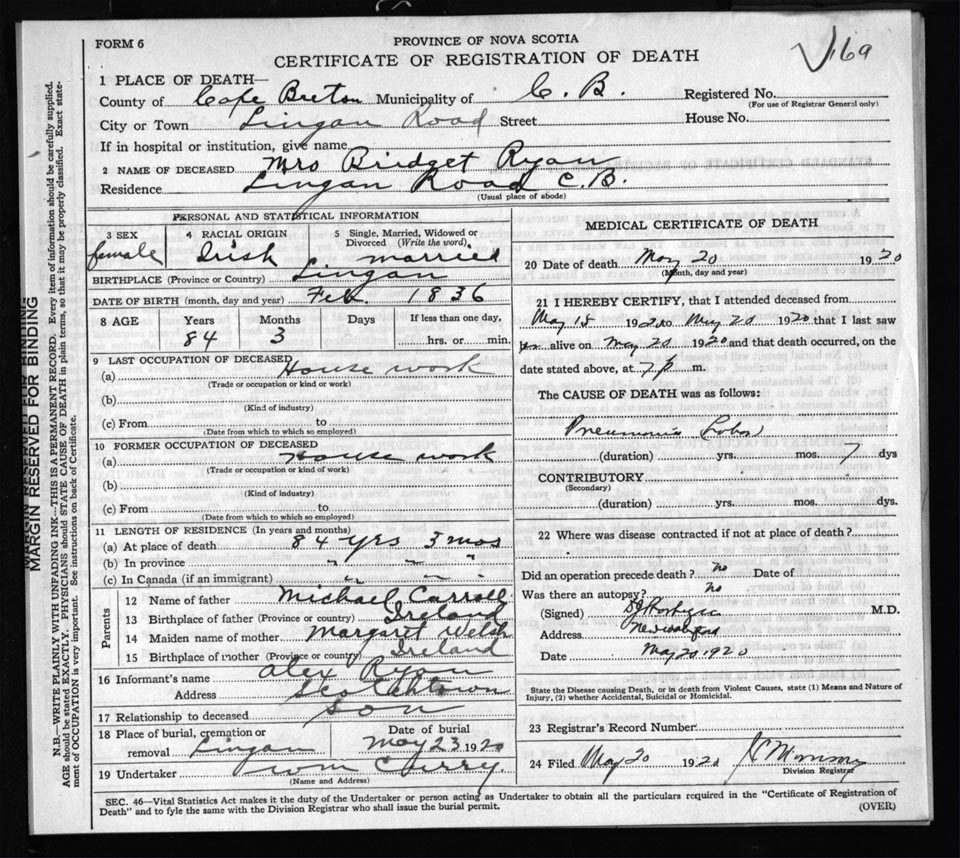 FORM 6
PROVINCE OF NOVA SCOTIA
CERTIFICATE OF REGISTRATION OF DEATH
169
1 PLACE OF DEATH—
County of Cape Breton Municipality of C. B. Registered No.
(For use of Registrar General only)
City or Town Lingan Road Street House No.
If in hospital or institution, give name
2 NAME OF DECEASED Mrs Bridget Ryan
Residence Lingan Road C.B.
(Usual place of abode)
PERSONAL AND STATISTICAL INFORMATION
3 SEX 4 RACIAL ORIGIN 5 Single, Married, Widowed or Divorced (Write the word)
female Irish married
BIRTHPLACE (Province or Country) Lingan
DATE OF BIRTH (month, day and year) Feb. 1836
8 AGE Years Months Days If less than one day,
84 3 hrs. or min.
9 LAST OCCUPATION OF DECEASED
(a) House work
(Trade or occupation or kind or work)
(b)
(Kind of industry)
(c) From to
(Date from which to which so employed)
10 FORMER OCCUPATION OF DECEASED
(a) House work
(Trade or occupation or kind of work)
(b)
(Kind of industry)
(c) From to
(Date from which to which so employed)
11 LENGTH OF RESIDENCE (In years and months)
(a) At place of death 84 yrs 3 mos
(b) In province " " "
(c) In Canada (if an immigrant) " " "
Parents
12 Name of father Michael Carroll
13 Birthplace of father (Province or country) Ireland
14 Maiden name of mother Margaret Welsh
15 Birthplace of mother (Province or country) Ireland
16 Informant's name Alex Ryan
Address Scotchtown
17 Relationship to deceased son
18 Place of burial, cremation or removal Lingan
Date of burial May 23 1920
19 Undertaker Wm Curry
(Name and Address)
MEDICAL CERTIFICATE OF DEATH
20 Date of death May 20 1920
(Month, day and year)
21 I HEREBY CERTIFY, that I attended deceased from
May 18 1920 to May 20 1920 that I last saw
alive on May 20 1920 and that death occurred, on the
date stated above, at 7 p m.
The CAUSE OF DEATH was as follows:
Pneumonia Lobar
(duration) yrs. mos. 7 dys
CONTRIBUTORY
(Secondary)
(duration) yrs. mos. dys.
22 Where was disease contracted if not at place of death?
Did an operation precede death? no Date of
Was there an autopsy? no
(Signed) M.D.
Address New Waterford
Date May 20 1920
State the Disease causing Death, or in death from Violent Causes, state (1) Means and Nature of
Injury, (2) whether Accidental, Suicidal or Homicidal.
23 Registrar's Record Number
24 Filed May 20 1920
Division Registrar
SEC. 46—Vital Statistics Act makes it the duty of the Undertaker or person acting as Undertaker to obtain all the particulars required in the "Certificate of Registration of
Death" and to fyle the same with the Division Registrar who shall issue the burial permit.
(OVER)
MARGIN RESERVED FOR BINDING
N.B.—WRITE PLAINLY WITH UNFADING INK—THIS IS A PERMANENT RECORD. Every item of information should be carefully supplied.
AGE should be stated EXACTLY. PHYSICIANS should STATE CAUSE OF DEATH in plain terms, so that it may be properly classified. Exact state-
ment of OCCUPATION is very important. See instructions on back of Certificate.